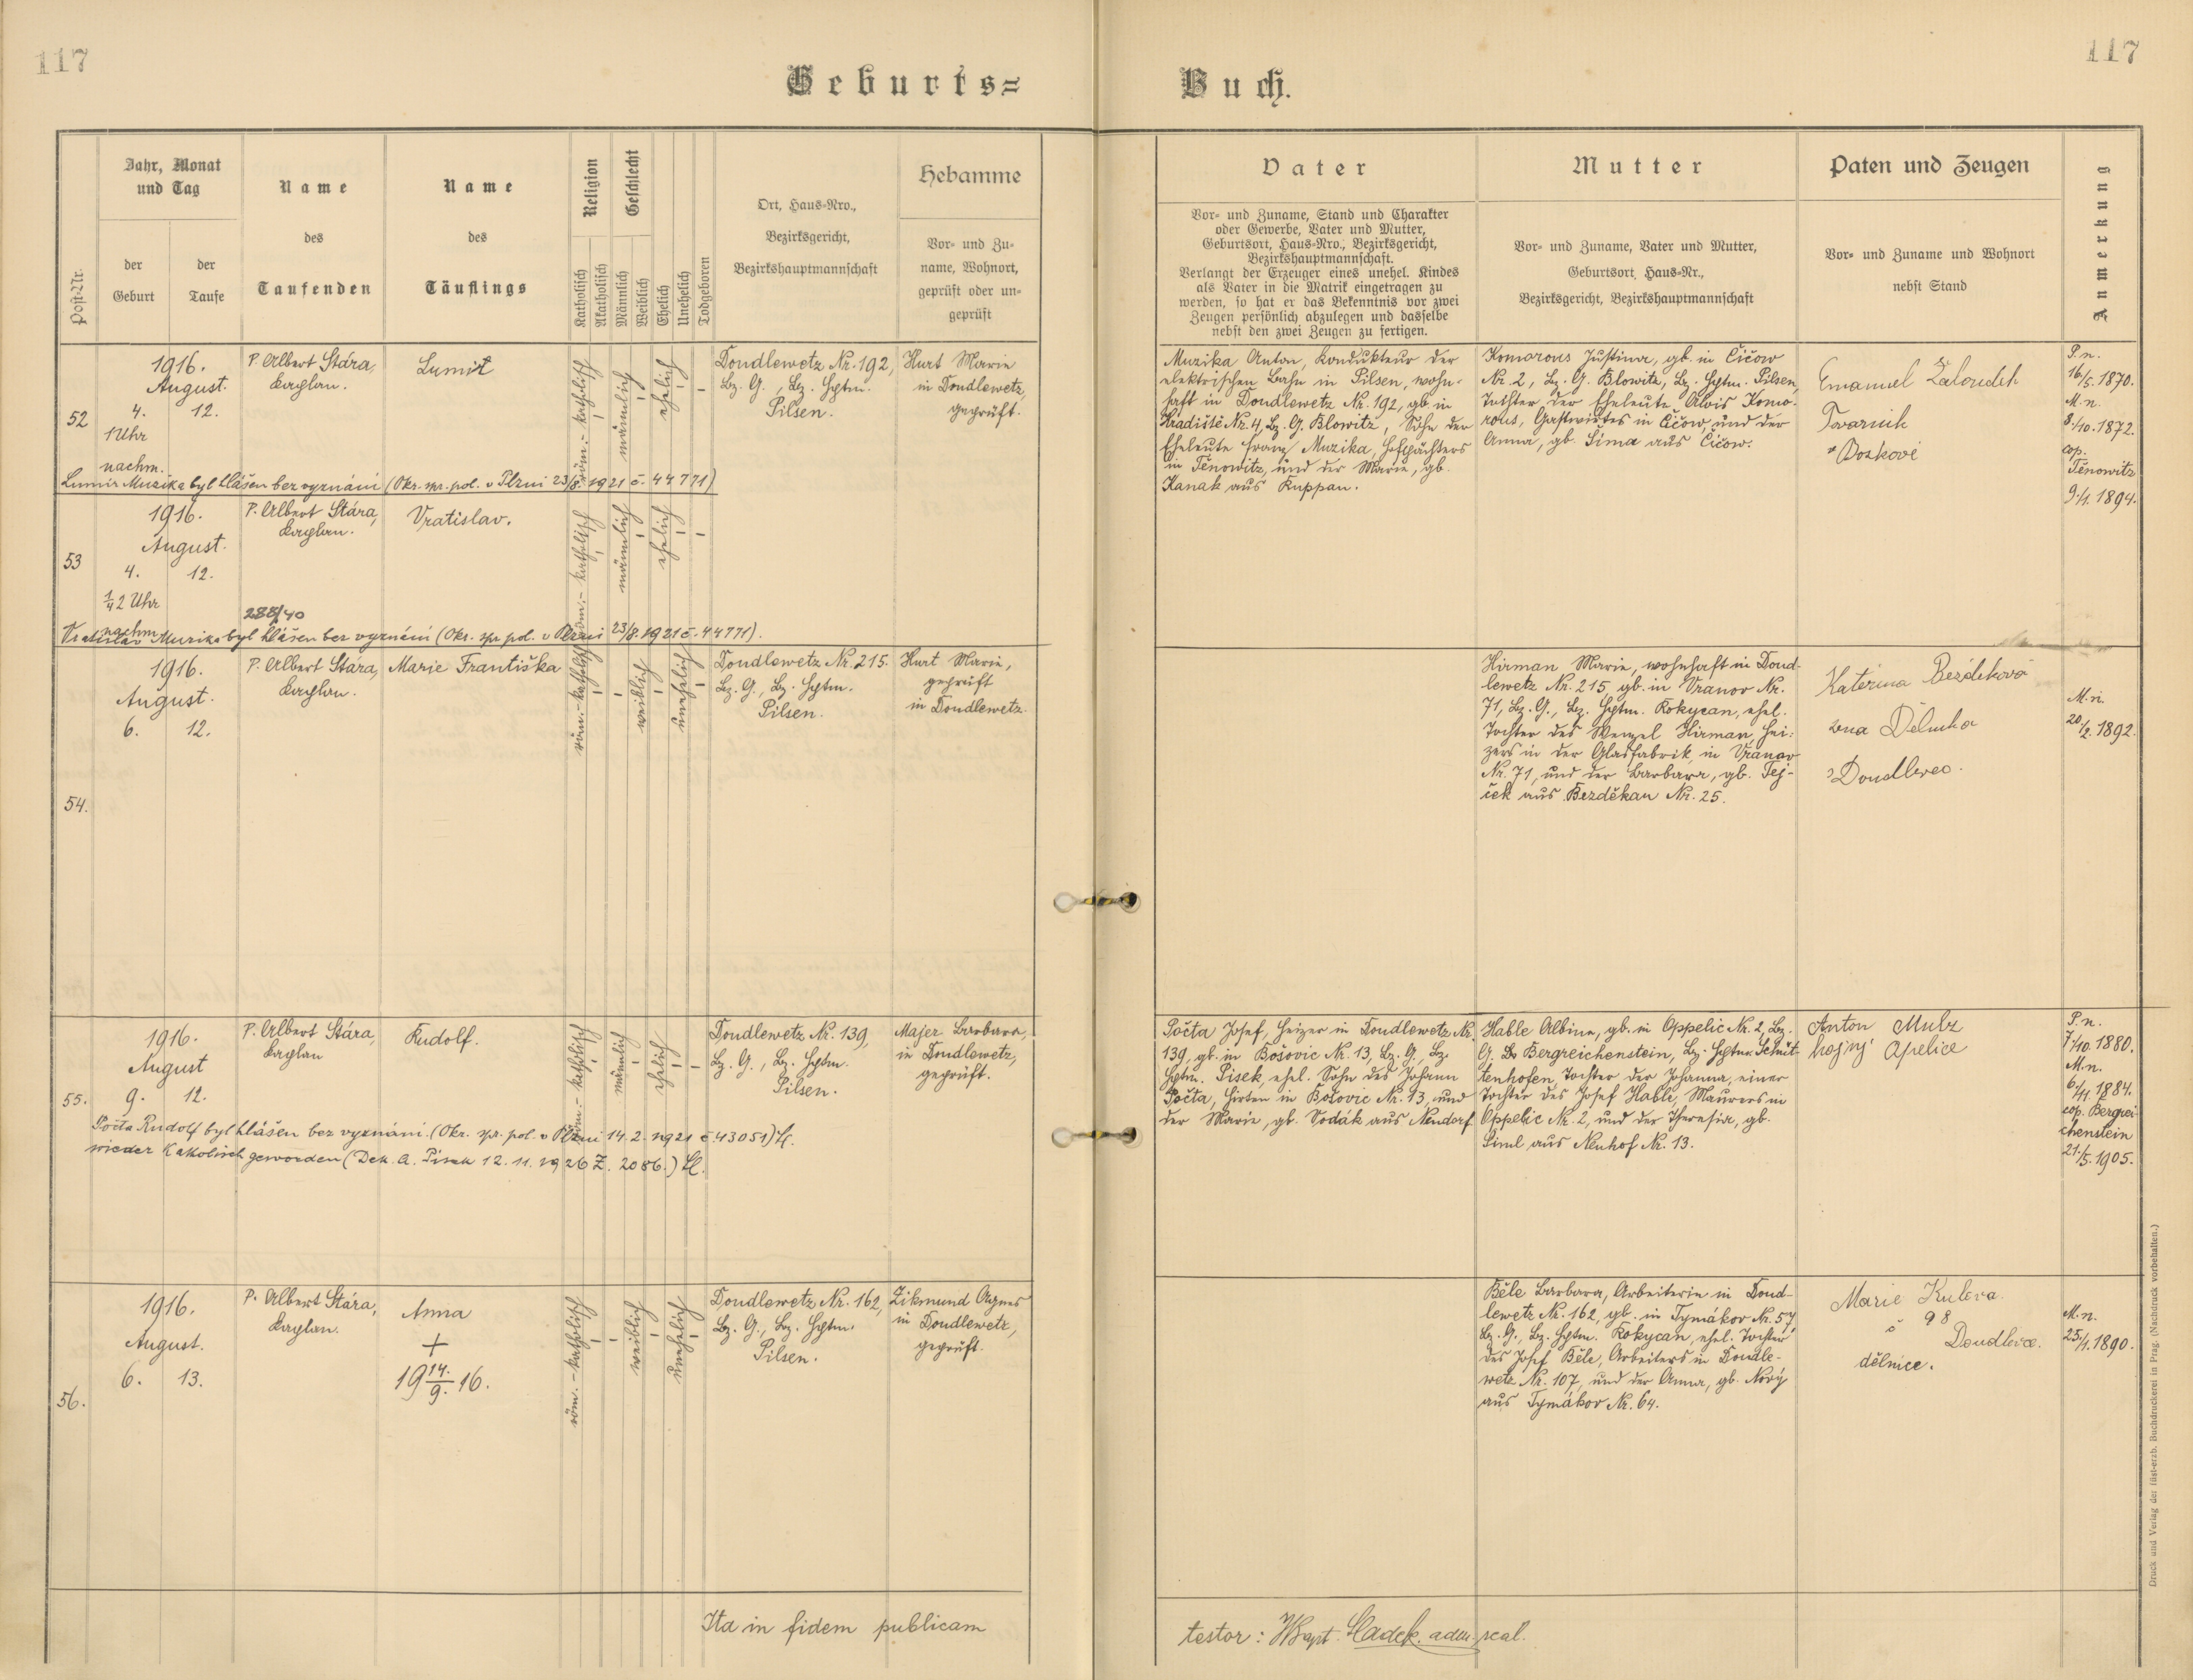 117
117
Geburts=
Buch.
Post-Nr.
Jahr, Monat
und Tag
der
Geburt
der
Taufe
Name
des
Taufenden
Name
des
Täuflings
Religion
Katholisch
Akatholisch
Geschlecht
Männlich
Weiblich
Ehelich
Unehelich
Todgeboren
Ort, Haus=Nro.,
Bezirksgericht,
Bezirkshauptmannschaft
Hebamme
Vor= und Zu=
name, Wohnort,
geprüft oder un=
geprüft
Vater
Vor= und Zuname, Stand und Charakter
oder Gewerbe, Vater und Mutter,
Geburtsort, Haus=Nro., Bezirksgericht,
Bezirkshauptmannschaft.
Verlangt der Erzeuger eines unehel. Kindes
als Vater in die Matrik eingetragen zu
werden, so hat er das Bekenntnis vor zwei
Zeugen persönlich abzulegen und dasselbe
nebst den zwei Zeugen zu fertigen.
Mutter
Vor= und Zuname, Vater und Mutter,
Geburtsort, Haus=Nr.,
Bezirksgericht, Bezirkshauptmannschaft
Paten und Zeugen
Vor= und Zuname und Wohnort
nebst Stand
Anmerkung
52
1916.
August.
4. 12.
1 Uhr
nachm.
P. Albert Stára,
Kaplan.
Lumír
röm.-katholisch
männlich
ehelich
Doudlewetz Nr. 192,
Bz. G., Bz. Hptm.
Pilsen.
Hurt Marie
in Doudlewetz,
geprüft.
Muzika Anton, Kondukteur der
elektrischen Bahn in Pilsen, wohn-
haft in Doudlewetz Nr. 192, gb. in
Hradiště Nr. 4, Bz. G. Blowitz, Sohn der
Eheleute Franz Muzika, Hofpächters
in Těnowitz, und der Marie, gb.
Kanak aus Ruppau.
Komorous Justina, gb. in Čičow
Nr. 2, Bz. G. Blowitz, Bz. Hptm. Pilsen,
Tochter der Eheleute Alois Komo-
rous, Gastwirtes in Čičow, und der
Anna, gb. Šima aus Čičow.
Emanuel Žaloudek
Tovarnik
z Boskovic
P. n.
16/5. 1870.
M. n.
8/10. 1872.
cop.
Těnowitz
9/1. 1894.
Lumír Muzika byl hlášen bez vyznání (Okr. spr. pol. v Plzni 23/8. 1921 č. 44771)
53
1916.
August.
4. 12.
1/4 2 Uhr
nachm.
P. Albert Stára,
Kaplan.
288/40
Vratislav.
röm.-katholisch
männlich
ehelich
Vratislav Muzika byl hlášen bez vyznání (Okr. spr. pol. v Plzni 23/8. 1921 č. 44771).
54.
1916.
August.
6. 12.
P. Albert Stára,
Kaplan.
Marie Františka
röm.-katholisch
weiblich
unehelich
Doudlewetz Nr. 215.
Bz. G., Bz. Hptm.
Pilsen.
Hurt Marie,
geprüft
in Doudlewetz.
Hirman Marie, wohnhaft in Doud-
lewetz Nr. 215, gb. in Vranov Nr.
71, Bz. G., Bz. Hptm. Rokycan, ehel.
Tochter des Wenzel Hirman, Hei-
zers in der Glasfabrik in Vranov
Nr. 71, und der Barbara, gb. Tej-
ček aus Bezděkau Nr. 25.
Kateřina Bezděková
žena Dělníka
z Doudlevec.
M. n.
20/2. 1892.
55.
1916.
August
9. 12.
P. Albert Stára,
Kaplan
Rudolf.
röm.-katholisch
männlich
ehelich
Doudlewetz Nr. 139,
Bz. G., Bz. Hptm.
Pilsen.
Majer Barbara,
in Doudlewetz,
geprüft.
Počta Josef, Heizer in Doudlewetz Nr.
139, gb. in Bošovic Nr. 13, Bz. G., Bz.
Hptm. Pisek, ehel. Sohn des Johann
Počta, Hirten in Bošovic Nr. 13, und
der Marie, gb. Sodák aus Neudorf.
Hable Albina, gb. in Oppelic Nr. 2, Bz.
G. Bergreichenstein, Bz. Hptm. Schüt-
tenhofen, Tochter der Johanna, einer
Tochter des Josef Hable, Maurers in
Oppelic Nr. 2, und der Theresia, gb.
Siml aus Neuhof Nr. 13.
Anton Mulz
hajný Apelice
P. n.
7/10. 1880.
M. n.
6/11. 1884.
cop. Bergrei-
chenstein
21/5. 1905.
Počta Rudolf byl hlášen bez vyznání. (Okr. spr. pol. v Plzni 14. 2. 1921 č 43051)
wieder Katolisch geworden (Dek. A. Pisek 12. 11. 1926 Z. 2086.)
56.
1916.
August.
6. 13.
P. Albert Stára,
Kaplan.
Anna
+
19 14./9. 16.
röm.-katholisch
weiblich
unehelich
Doudlewetz Nr. 162,
Bz. G., Bz. Hptm.
Pilsen.
Zikmund Agnes
in Doudlewetz,
geprüft.
Běle Barbara, Arbeiterin in Doud-
lewetz Nr. 162, gb. in Tymákov Nr. 57,
Bz. G., Bz. Hptm. Rokycan, ehel. Tochter
des Josef Běle, Arbeiters in Doudle-
wetz Nr. 107, und der Anna, gb. Nový
aus Tymákov Nr. 64.
Marie
č 98
Doudlevce.
dělnice.
M. n.
25/1. 1890.
Ita in fidem publicam
testor: Sladek. adm.
Druck und Verlag der fürst-erzb. Buchdruckerei in Prag. (Nachdruck vorbehalten.)